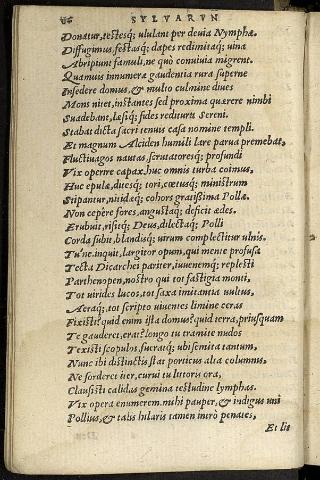 SYLVARVN
Donatur, testesq; ululant per deuia Nymphæ.
Diffugimus, festasq; dapes redimitaq; uina
Abripiunt famuli, ne quo conuiuia migrent.
Quamuis innumeræ gaudentia rura superne
Insedere domus, & multo culmine diues
Mons nitet, instantes sed proxima quærere nimbi
Suadebant, læsiq; fides reditura Sereni.
Stabat dicta sacri tenuis casa nomine templi.
Et magnum Alciden humili lare parua premebat,
Fluctiuagos nautas, scrutatoresq; profundi
Vix operire capax, huc omnis turba coimus,
Huc epulæ, diuesq; tori, cœtusq; ministrum
Stipantur, nitidæq; cohors gratissima Pollæ.
Non cepêre fores, angustaq; deficit ædes.
Erubuit, risitq; Deus, dilectaq; Polli
Corda subit, blandisq; uirum complectitur ulnis.
Tu'ne, inquit, largitor opum, qui mente profusa
Tecta Dicarchei pariter, iuuenemq; replesti
Parthenopen, nostro qui tot fastigia monti,
Tot uirides lucos, tot saxa imitantia uultus,
Aeraq;, tot scripto uiuentes limine ceras
Fixisti? quid enim ista domus? quid terra, priusquam
Te gauderet, erat? longo tu tramite nudos
Texisti scopulos, fueratq; ubi semita tantum,
Nunc ibi distinctis stat porticus alta columnis,
Ne sorderet iter, curui tu litoris ora,
Clausisti calidas gemina testudine lymphas.
Vix opera enumerem. mihi pauper, & indigus uni
Pollius, & talis hilaris tamen intrò penates,
Et lit